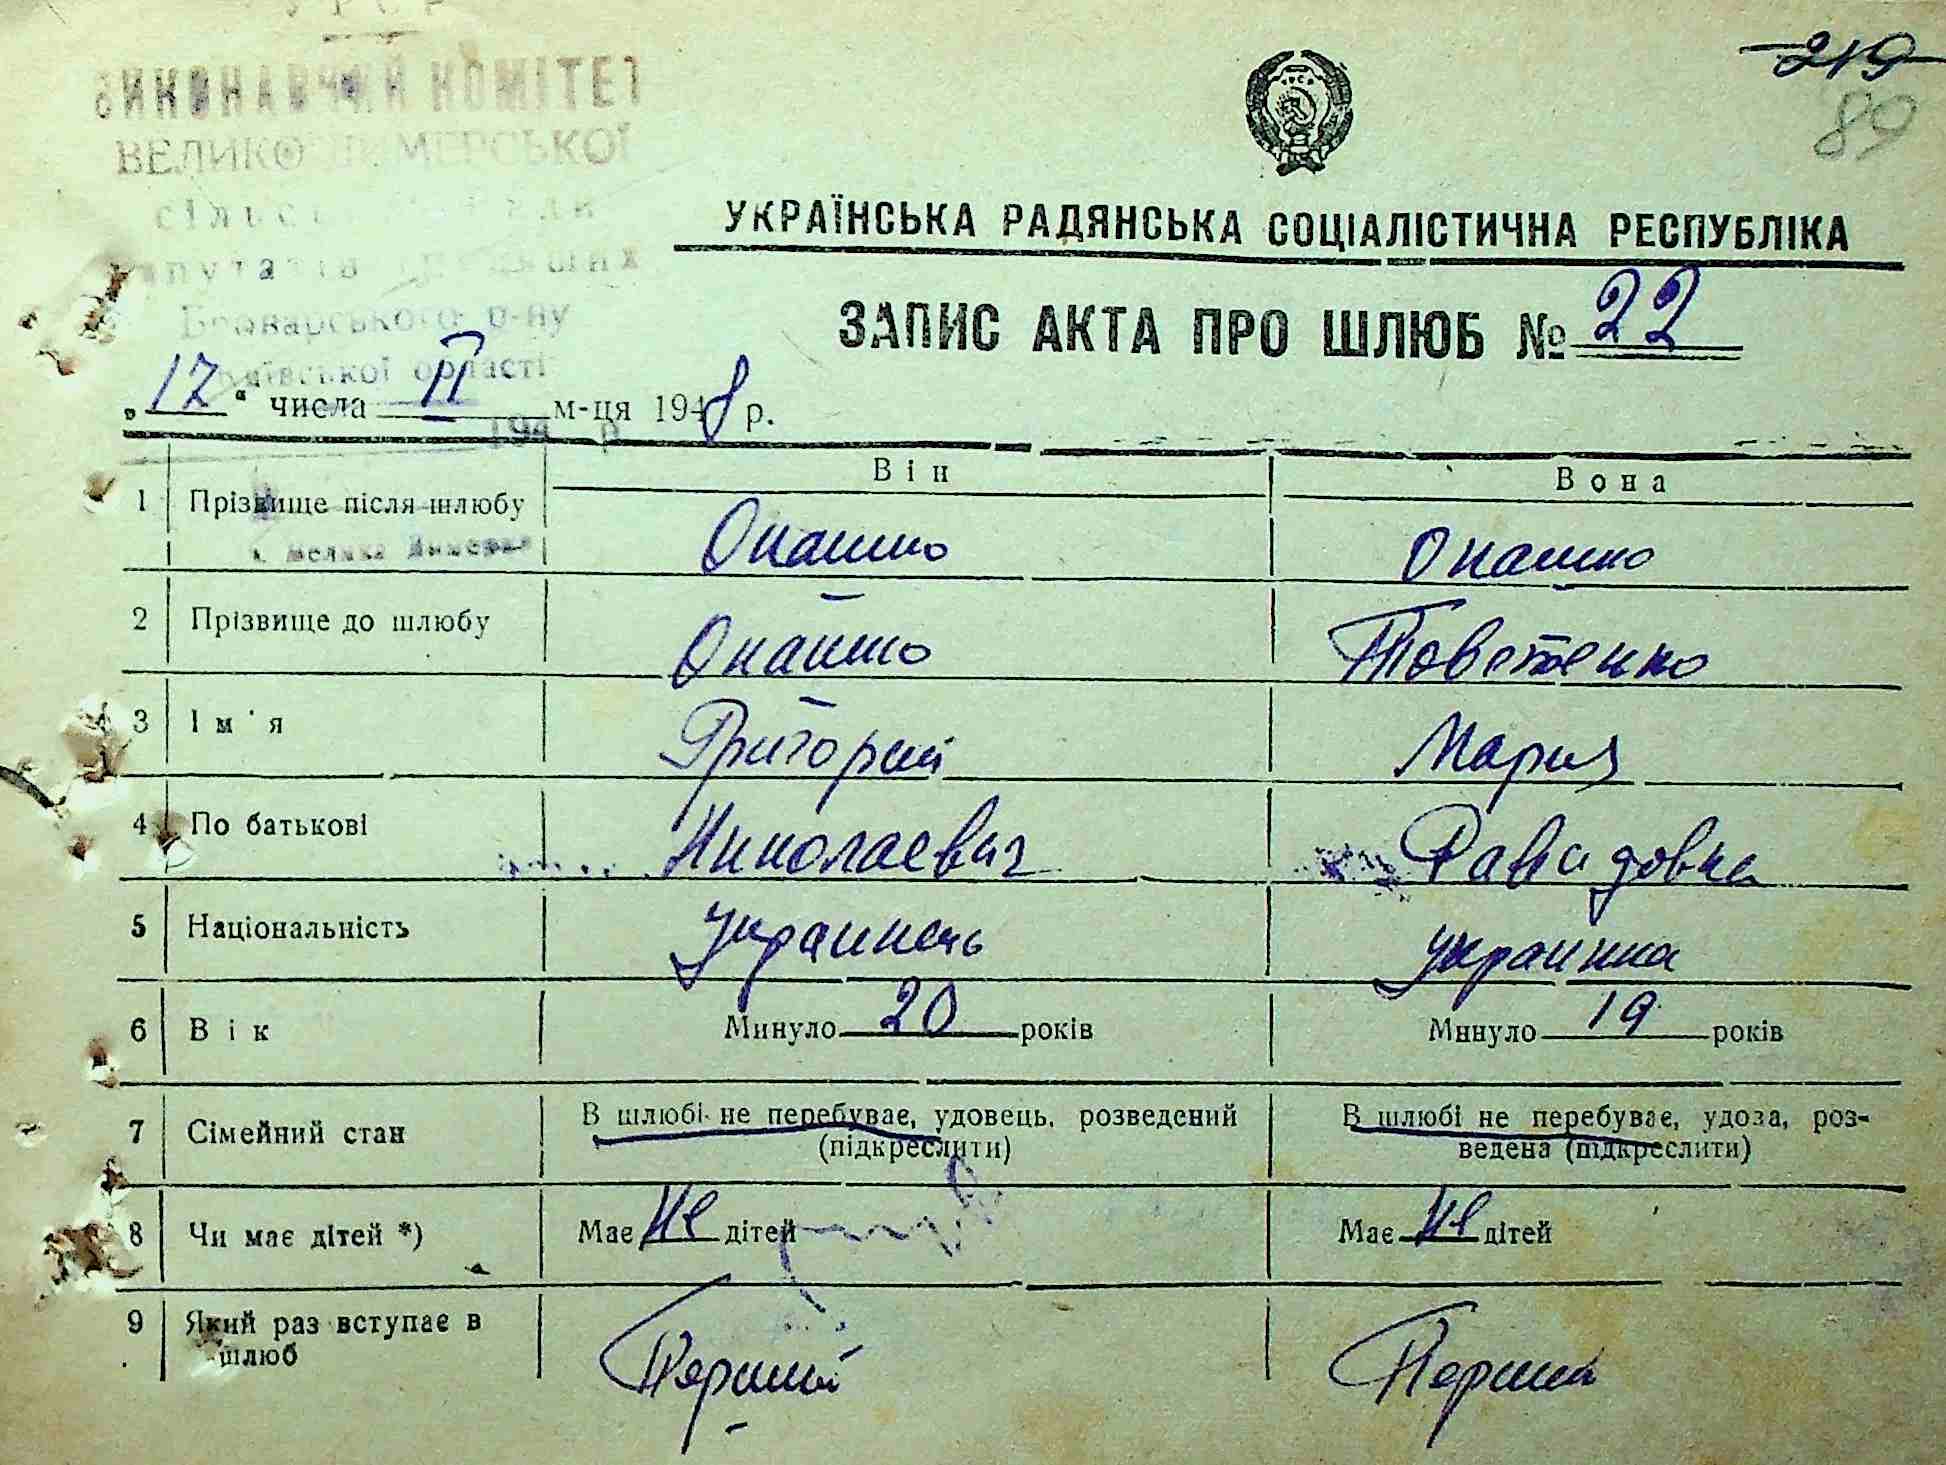 УРСР
219
89
ВИКОНАВЧИЙ КОМІТЕТ
ВЕЛИКО ДИМЕРСЬКОЇ
сільс
депутатів трудящих
Броварського р-ну
Київської області
194 р
с. Велика Димерка
УКРАЇНСЬКА РАДЯНСЬКА СОЦІАЛІСТИЧНА РЕСПУБЛІКА
ЗАПИС АКТА ПРО ШЛЮБ № 22
„17“ числа II м-ця 1948 р.
Він Вона
1 Прізвище після шлюбу Опашко Опашко
2 Прізвище до шлюбу Опашко Товстенко
3 Ім'я Григорий Мария
4 По батькові Николаевич
5 Національність украинець украинка
6 Вік Минуло 20 років Минуло 19 років
7 Сімейний стан В шлюбі не перебуває, удовець, розведений (підкреслити) В шлюбі не перебуває, удова, розведена (підкреслити)
8 Чи має дітей *) Має не дітей Має не дітей
9 Який раз вступає в шлюб Перший Перший